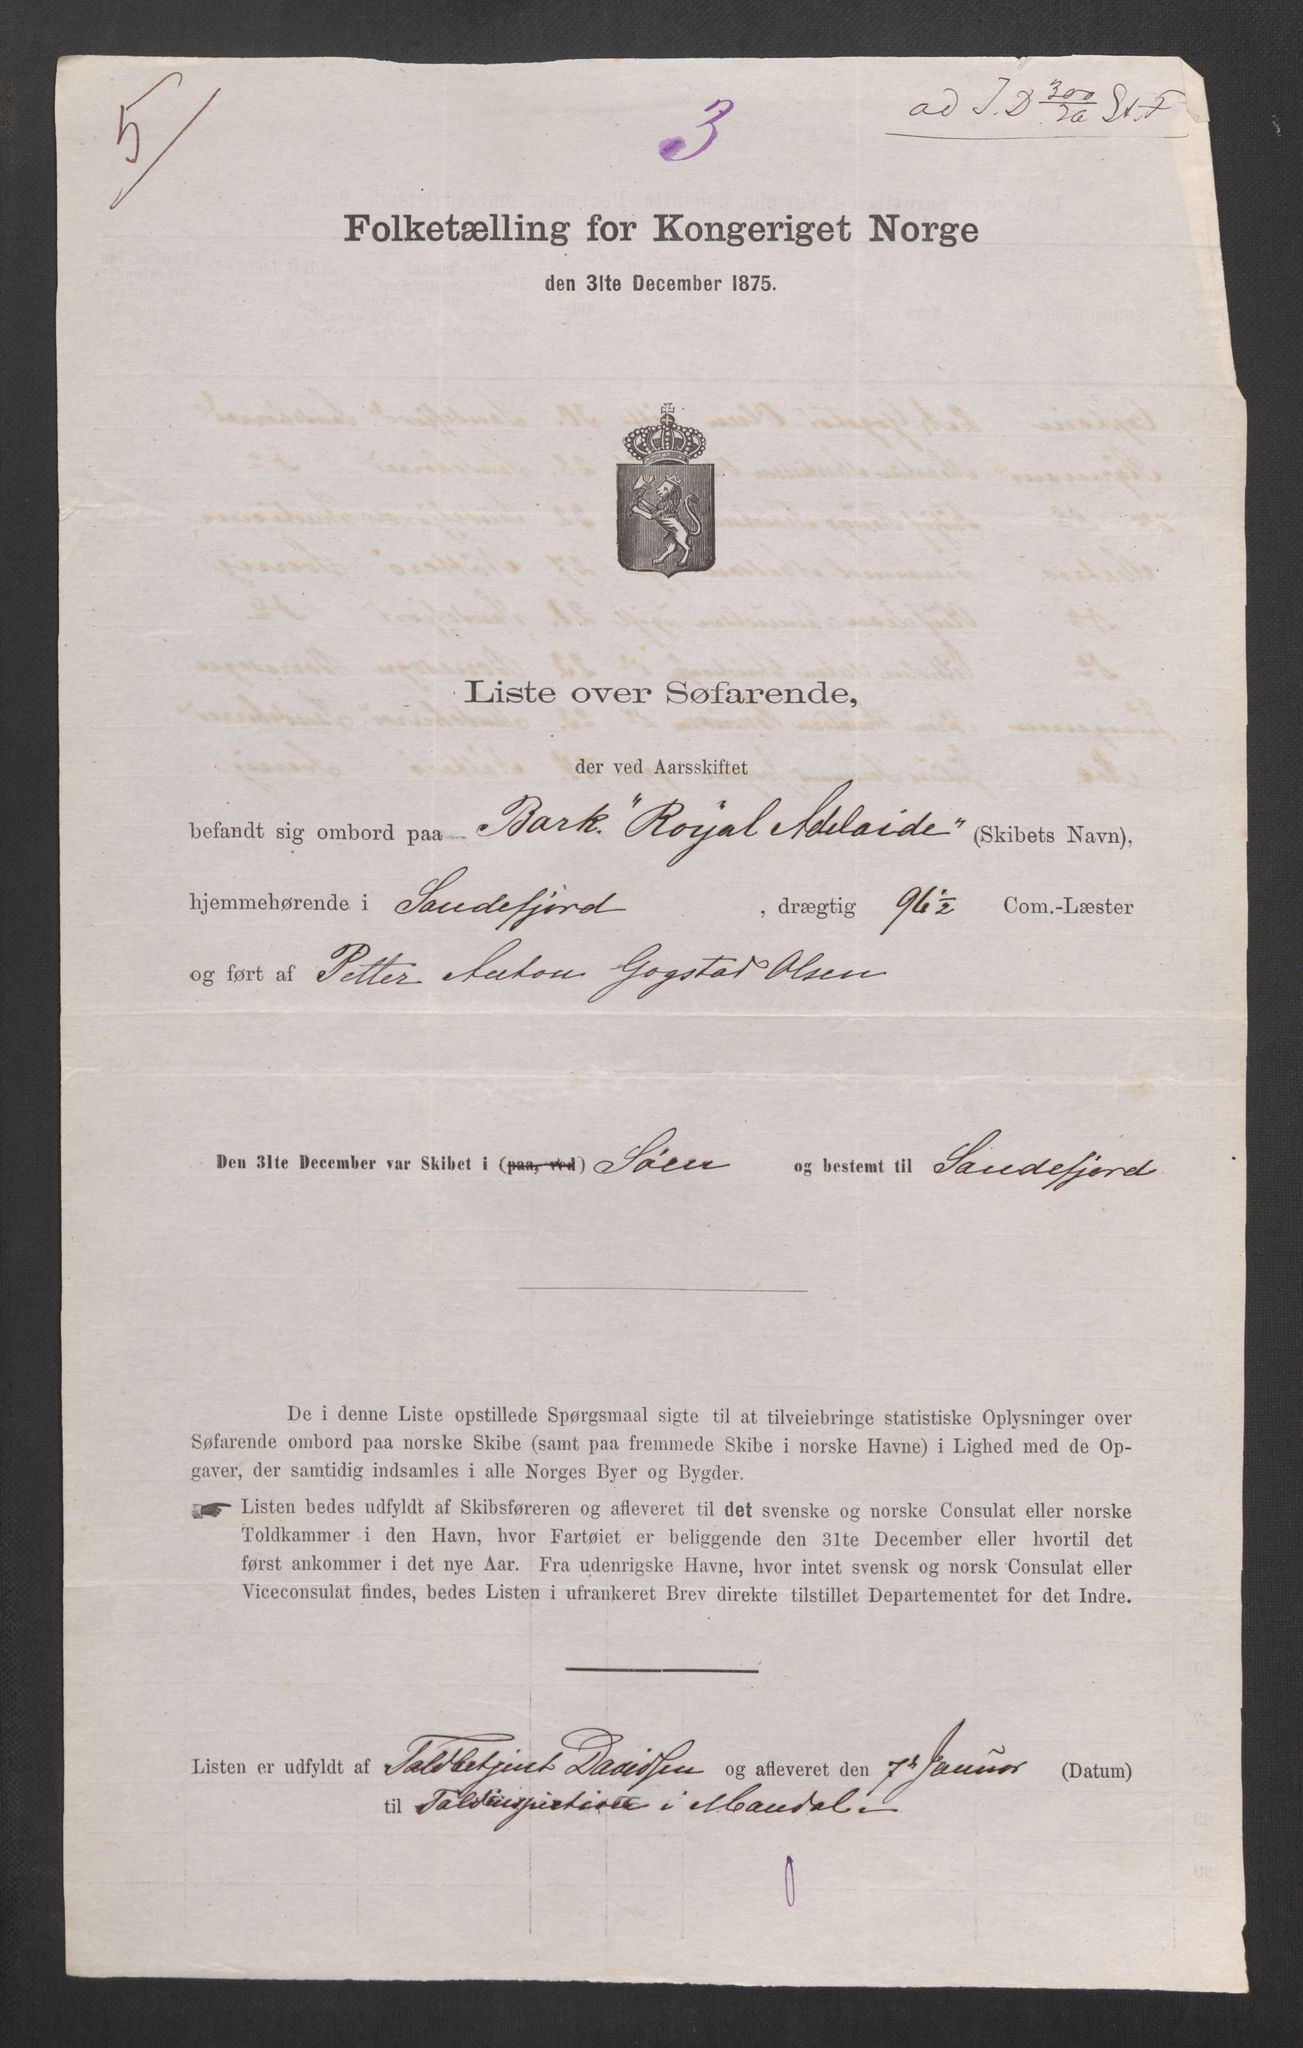 5/
3
ad J.D 300/76 St. F
Folketælling for Kongeriget Norge
den 31te December 1875.
Liste over Søfarende,
der ved Aarsskiftet
befandt sig ombord paa Bark. "Royal Adelaide" (Skibets Navn),
hjemmehørende i Sandefjord , drægtig 96½ Com.-Læster
og ført af Petter Anton Gogstad Olsen
Den 31te December var Skibet i (paa, ved) Søen og bestemt til Sandefjord
De i denne Liste opstillede Spørgsmaal sigte til at tilveiebringe statistiske Oplysninger over
Søfarende ombord paa norske Skibe (samt paa fremmede Skibe i norske Havne) i Lighed med de Op-
gaver, der samtidig indsamles i alle Norges Byer og Bygder.
☛ Listen bedes udfyldt af Skibsføreren og afleveret til det svenske og norske Consulat eller norske
Toldkammer i den Havn, hvor Fartøiet er beliggende den 31te December eller hvortil det
først ankommer i det nye Aar. Fra udenrigske Havne, hvor intet svensk og norsk Consulat eller
Viceconsulat findes, bedes Listen i ufrankeret Brev direkte tilstillet Departementet for det Indre.
Listen er udfyldt af Toldbetjent Davidsen og afleveret den 7de Januar (Datum)
til Toldinspectionen i Mandal.